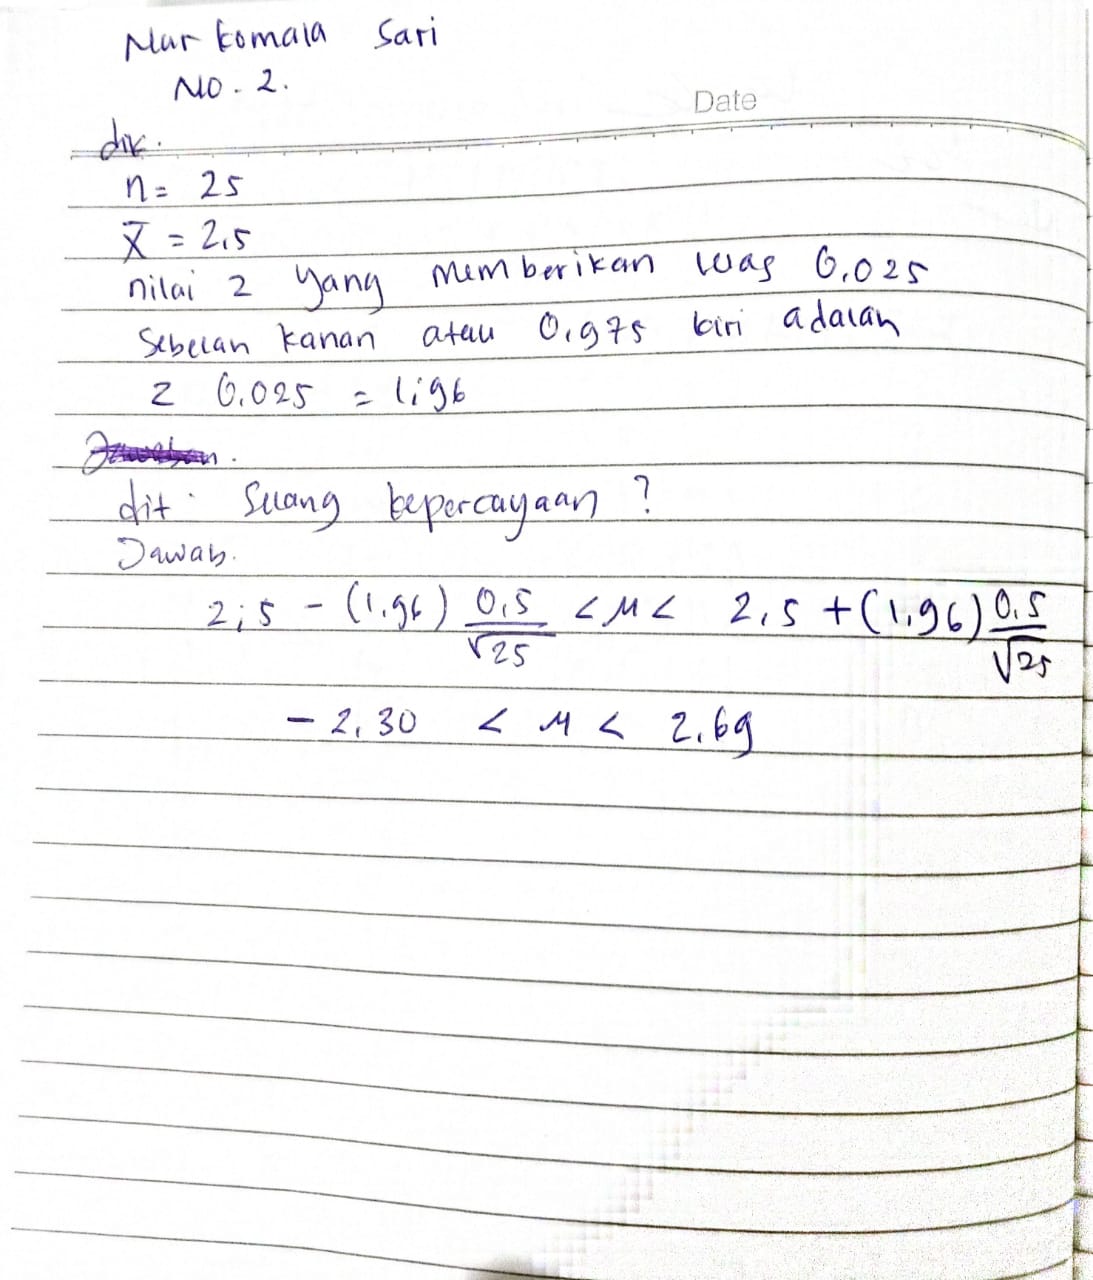 Nur komala Sari
No. 2.
Date
dik.
n = 25
x̄ = 2,5
nilai z yang memberikan luas 0,025
Sebelah kanan atau 0,975 kiri adalah
z 0,025 = 1,96
dit. Selang kepercayaan ?
Jawab.
2,5 - (1,96) 0,5/√25 < μ < 2,5 + (1,96) 0,5/√25
- 2,30 < μ < 2,69